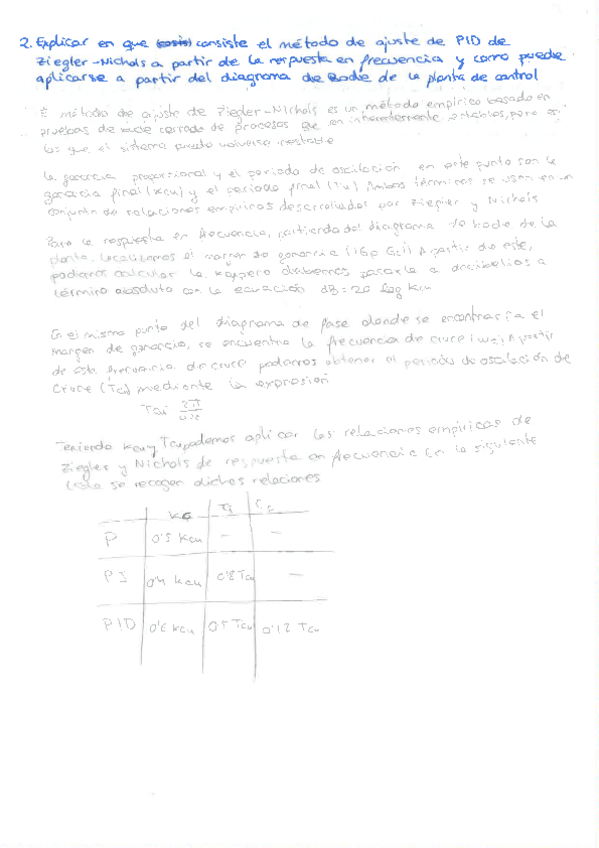 2. Explicar en que consiste el método de ajuste de PID de
Ziegler-Nichols a partir de la respuesta en frecuencia y como puede
aplicarse a partir del diagrama de Bode de la planta de control
E método de ajuste de Ziegler-Nichols es un método empírico basado en
pruebas de bucle cerrado de procesos que en inherentemente estables, pero en
los que el sistema puede volverse inestable
La ganancia proporcional y el periodo de oscilación en este punto son la
ganancia final (Kcu) y el periodo final (Tu) Ambos términos se usan en un
conjunto de relaciones empíricas desarrolladas por Ziegler y Nichols
Para la respuesta en frecuencia, partiendo del diagrama de bode de la
planta, localizamos el margen de ganancia A partir de este,
podemos calcular la pero debemos pasarla a decibelios a
término absoluto con la ecuación dB = 20 log Kcu
En el mismo punto del diagrama de fase donde se encontraría el
margen de ganancia, se encuentra la frecuencia de cruce (wc) A partir
de esta frecuencia de cruce podemos obtener el periodo de oscilación de
Cruce (Tcu) mediante la expresión
2π
Teniendo Kcu y Tcu podemos aplicar las relaciones empíricas de
Ziegler y Nichols de respuesta en frecuencia en la siguiente
se recogen dichas relaciones
Kc Ti
P 0'5 Kcu - -
PI 0'4 Kcu 0'8 Tcu -
PID 0'6 Kcu 0'5 Tcu 0'12 Tcu